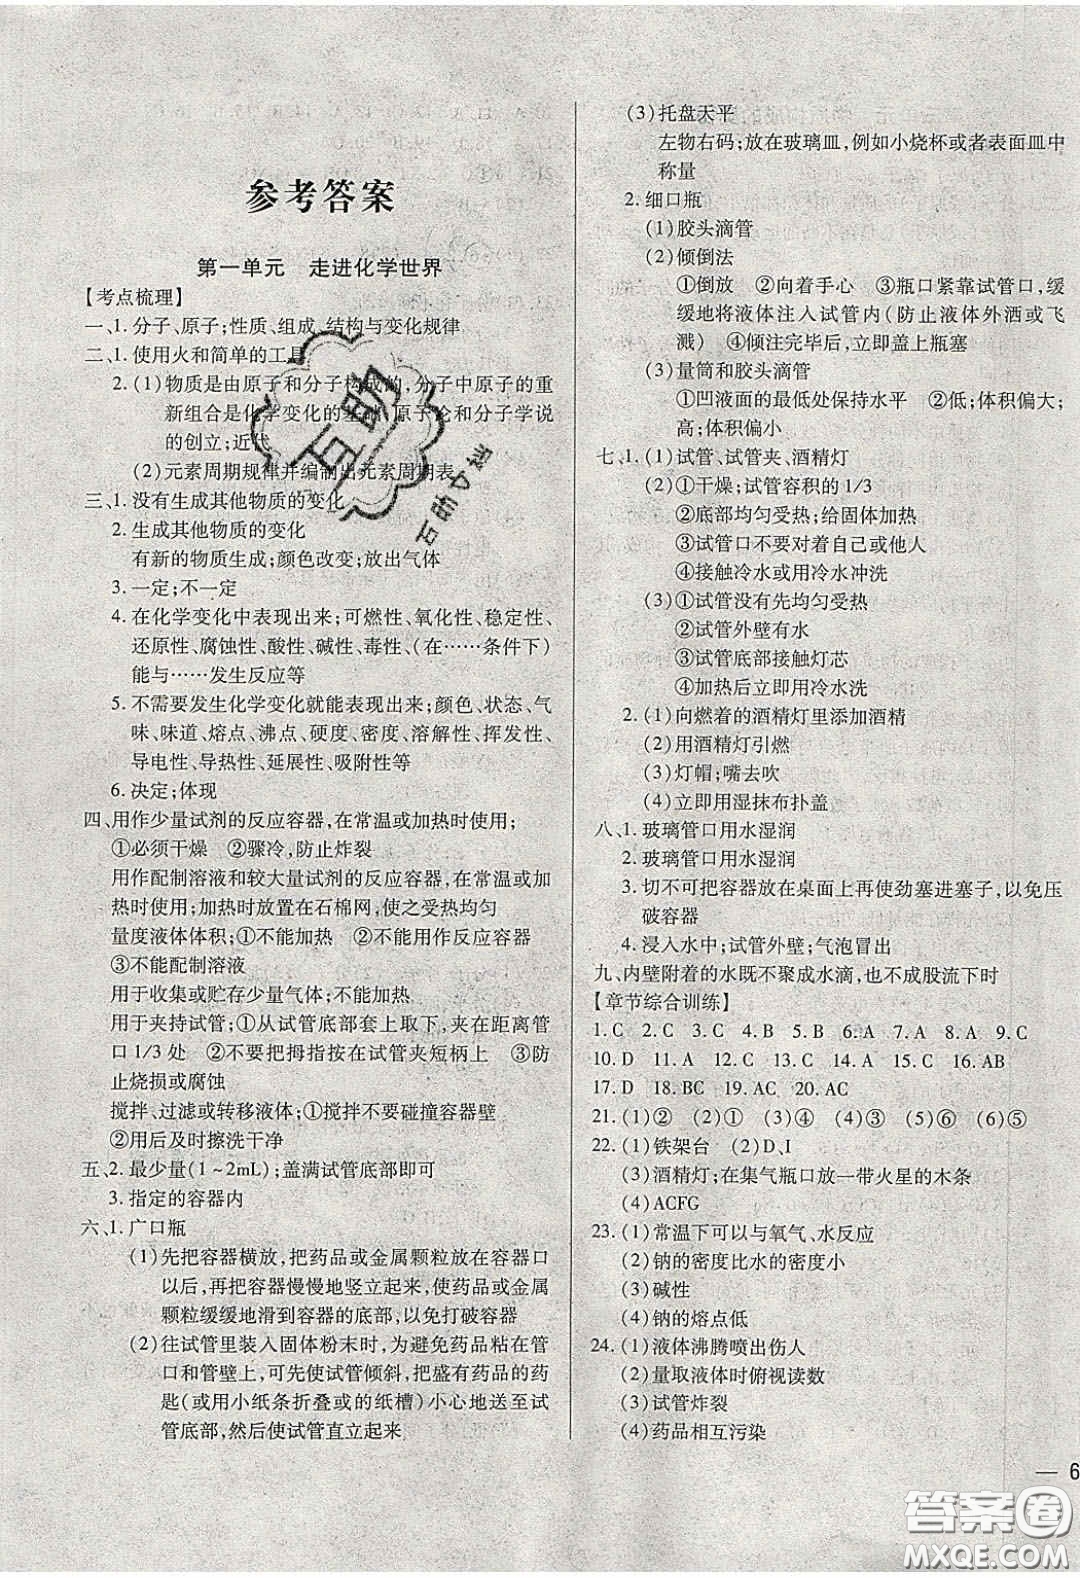 参考答案
第一单元　走进化学世界
【考点梳理】
一、1. 分子、原子;性质、组成、结构与变化规律
二、1. 使用火和简单的工具
2. (1)物质是由原子和分子构成的,分子中原子的重
新组合是化学变化的基础,原子论和分子学说
的创立;近代
(2)元素周期规律并编制出元素周期表
三、1. 没有生成其他物质的变化
2. 生成其他物质的变化
有新的物质生成;颜色改变;放出气体
3. 一定;不一定
4. 在化学变化中表现出来;可燃性、氧化性、稳定性、
还原性、腐蚀性、酸性、碱性、毒性、(在……条件下)
能与……发生反应等
5. 不需要发生化学变化就能表现出来;颜色、状态、气
味、味道、熔点、沸点、硬度、密度、溶解性、挥发性、
导电性、导热性、延展性、吸附性等
6. 决定;体现
四、用作少量试剂的反应容器,在常温或加热时使用;
①必须干燥　②骤冷,防止炸裂
用作配制溶液和较大量试剂的反应容器,在常温或加
热时使用;加热时放置在石棉网,使之受热均匀
量度液体体积;①不能加热　②不能用作反应容器
③不能配制溶液
用于收集或贮存少量气体;不能加热
用于夹持试管;①从试管底部套上取下,夹在距离管
口 1/3 处　②不要把拇指按在试管夹短柄上　③防
止烧损或腐蚀
搅拌、过滤或转移液体;①搅拌不要碰撞容器壁
②用后及时擦洗干净
五、2. 最少量(1~2mL);盖满试管底部即可
3. 指定的容器内
六、1. 广口瓶
(1)先把容器横放,把药品或金属颗粒放在容器口
以后,再把容器慢慢地竖立起来,使药品或金属
颗粒缓缓地滑到容器的底部,以免打破容器
(2)往试管里装入固体粉末时,为避免药品粘在管
口和管壁上,可先使试管倾斜,把盛有药品的药
匙(或用小纸条折叠或的纸槽)小心地送至试
管底部,然后使试管直立起来
(3)托盘天平
左物右码;放在玻璃皿,例如小烧杯或者表面皿中
称量
2. 细口瓶
(1)胶头滴管
(2)倾倒法
①倒放　②向着手心　③瓶口紧靠试管口,缓
缓地将液体注入试管内(防止液体外洒或飞
溅)　④倾注完毕后,立即盖上瓶塞
(3)量筒和胶头滴管
①凹液面的最低处保持水平　②低;体积偏大;
高;体积偏小
七、1. (1)试管、试管夹、酒精灯
(2)①干燥;试管容积的 1/3
②底部均匀受热;给固体加热
③试管口不要对着自己或他人
④接触冷水或用冷水冲洗
(3)①试管没有先均匀受热
②试管外壁有水
③试管底部接触灯芯
④加热后立即用冷水洗
2. (1)向燃着的酒精灯里添加酒精
(2)用酒精灯引燃
(3)灯帽;嘴去吹
(4)立即用湿抹布扑盖
八、1. 玻璃管口用水湿润
2. 玻璃管口用水湿润
3. 切不可把容器放在桌面上再使劲塞进塞子,以免压
破容器
4. 浸入水中;试管外壁;气泡冒出
九、内壁附着的水既不聚成水滴,也不成股流下时
【章节综合训练】
1. C　2. C　3. C　4. B　5. B　6. A　7. A　8. A　9. C
10. D　11. A　12. C　13. C　14. A　15. C　16. AB
17. D　18. BC　19. AC　20. AC
21. (1)②　(2)①　(3)④　(4)③　(5)⑥　(6)⑤
22. (1)铁架台　(2)D、I
(3)酒精灯;在集气瓶口放一带火星的木条
(4)ACFG
23. (1)常温下可以与氧气、水反应
(2)钠的密度比水的密度小
(3)碱性
(4)钠的熔点低
24. (1)液体沸腾喷出伤人
(2)量取液体时俯视读数
(3)试管炸裂
(4)药品相互污染
— 6
互助
答案圈
MXQE.COM